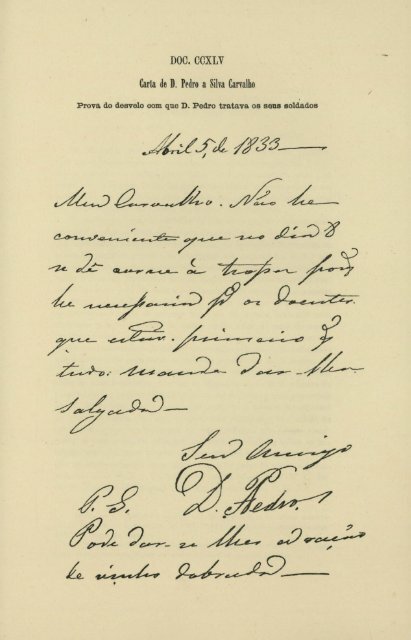 DOC. CCXLV
Carta de D. Pedro a Silva Carvalho
Prova do desvelo com que D. Pedro tratava os seus soldados
Abril 5, de 1833
Meu Carvalho. Não he
conveniente que no dia 8
se dê carne à tropa pois
he necessaria pª os doentes
que estão primeiro q
tudo: mande dar-lhes
salgada
Seu Amigo
D. Pedro.
P. S.
Pode dar-se lhes a ração
de vinho dobrada